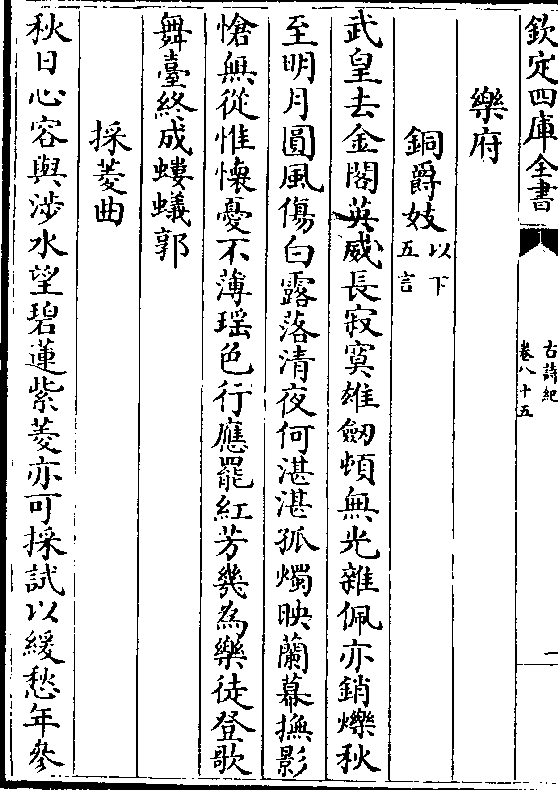 欽定四庫全書
古詩紀
卷八十五
一
樂府
銅爵妓以下五言
武皇去金閣英威長寂寞雄劒頓無光雜佩亦銷爍秋
至明月圓風傷白露落清夜何湛湛孤燭映蘭幕撫影
愴無從惟懐憂不薄瑶色行應罷紅芳幾為樂徒登歌
舞臺終成螻蟻郭
採菱曲
秋日心容與涉水望碧蓮紫菱亦可採試以緩愁年參